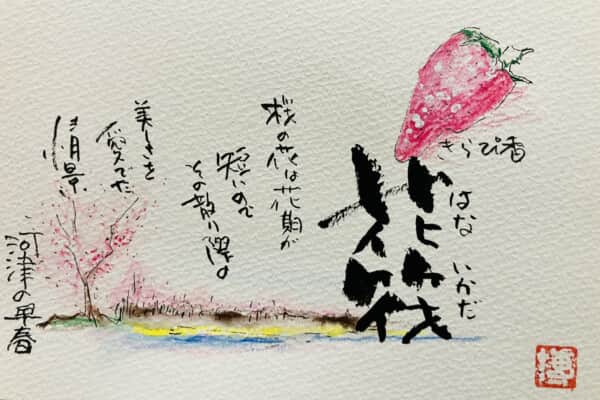 きらぴ香
はな いかだ
花筏
桜の花は花期が
短いので
その散り際の
美しさを
愛でた
情景
河津の早春